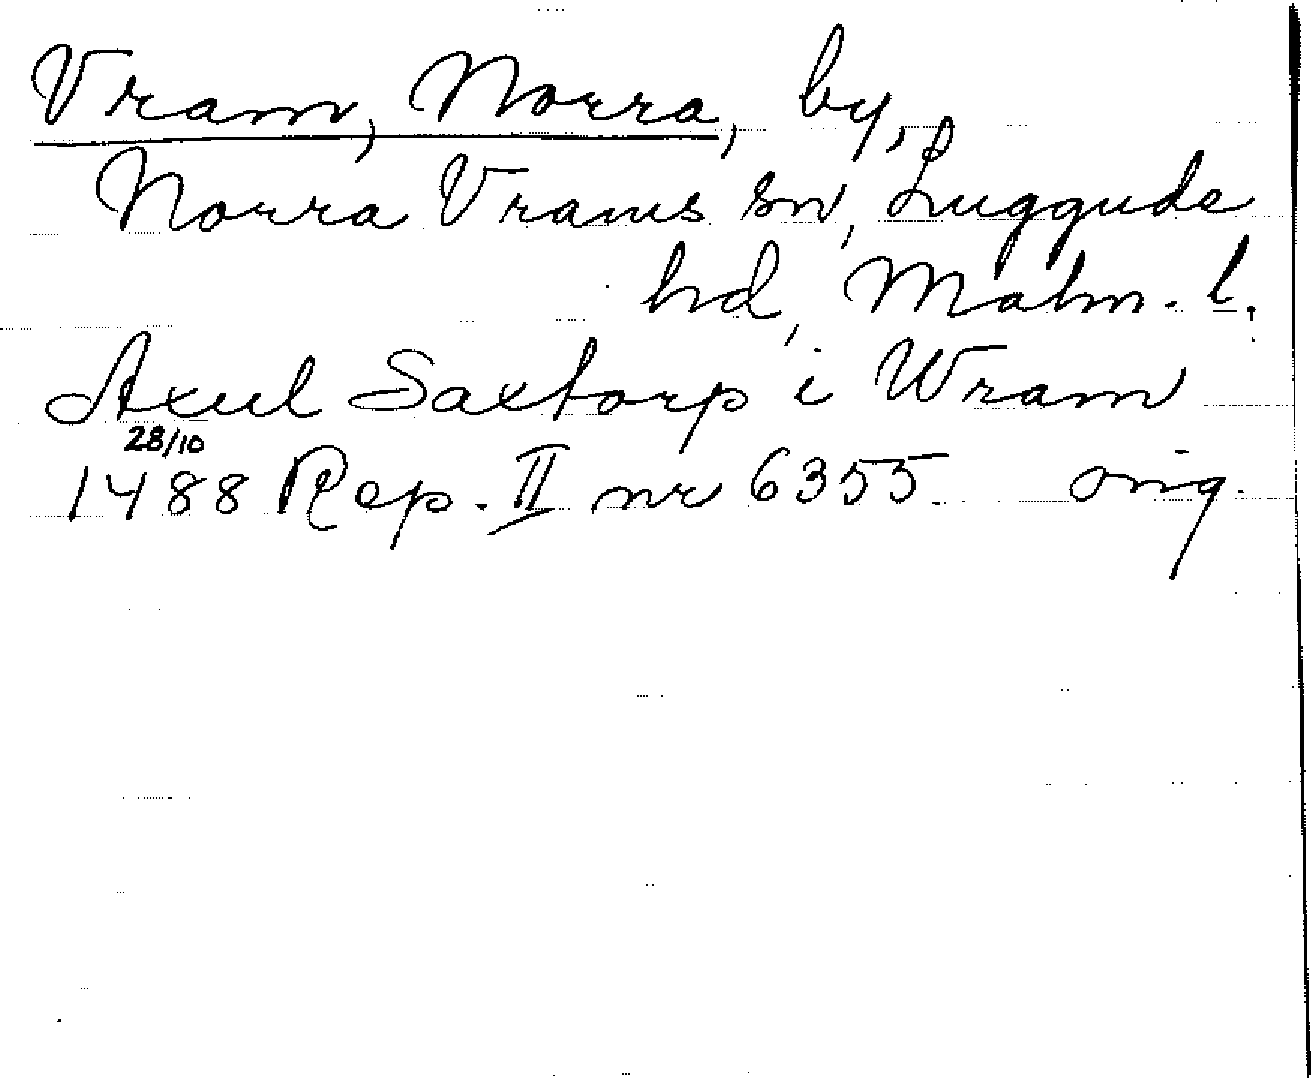 Vram, Norra, by,
Norra Vrams sn, Luggude
hd, Malm. l.
Axul Saxtorp i Wram
28/10
1488 Rep. II nr 6355. orig.